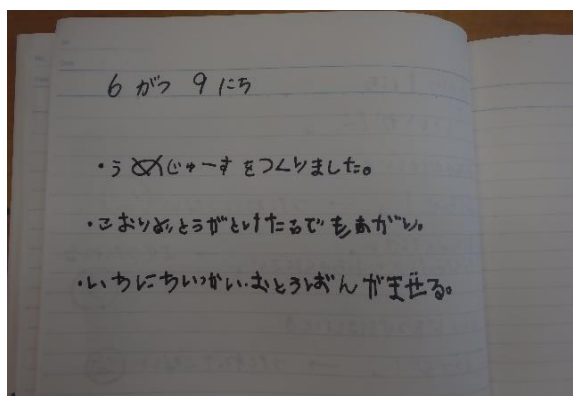 6 がつ 9 にち
・うめじゅーすをつくりました。
・こおりざとうがとけたらできあがり。
・いちにちいっかい・おとうさんがまぜる。